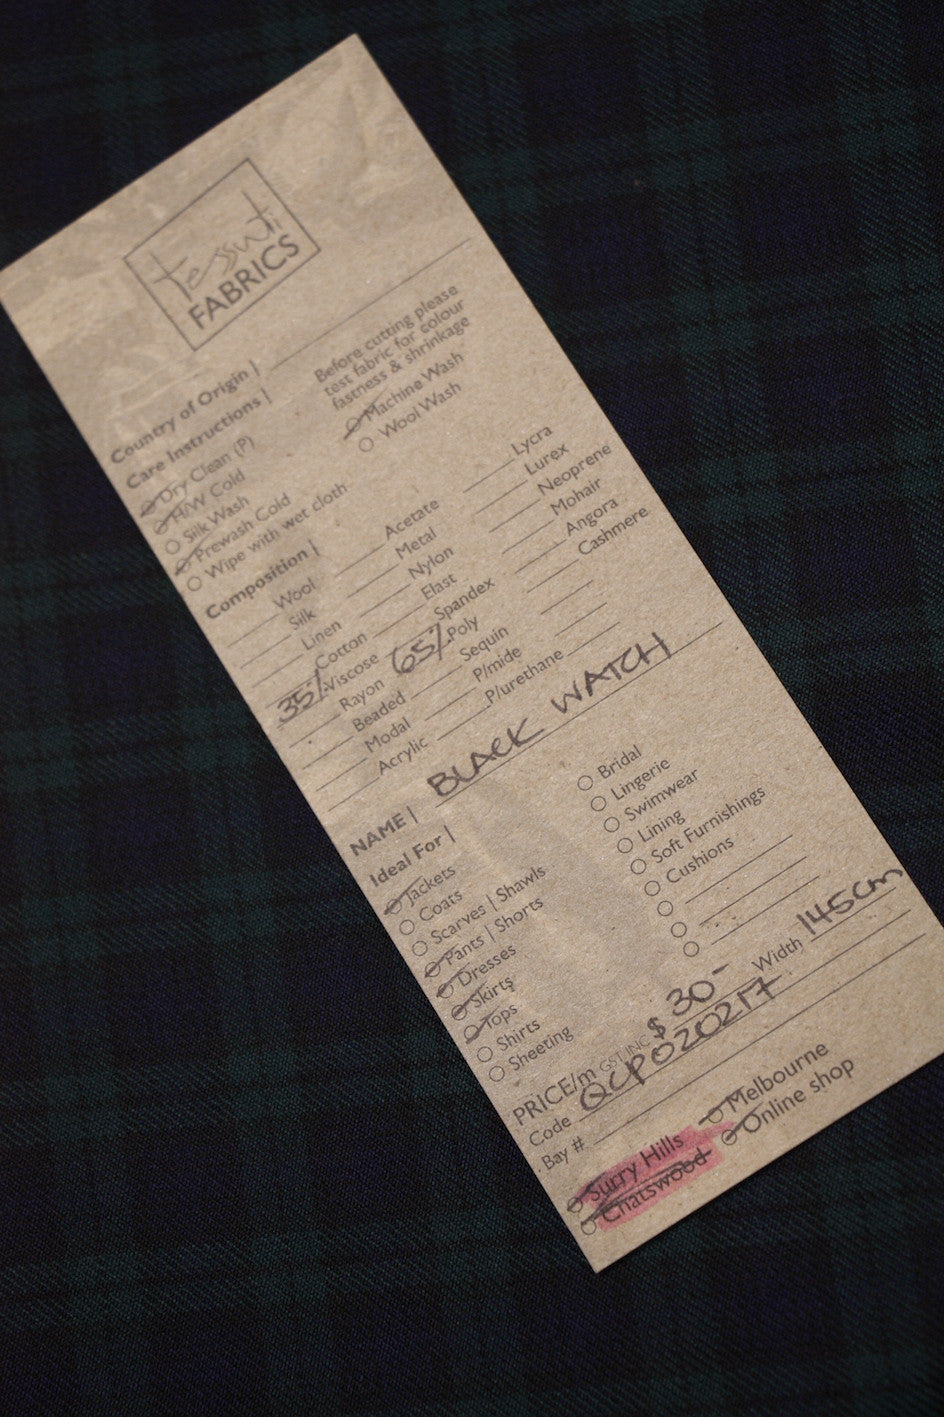 tessuti
FABRICS
Country of Origin |
Care Instructions |
Before cutting please
test fabric for colour
fastness & shrinkage
Dry Clean (P)
H/W Cold
Silk Wash
Prewash Cold
Wipe with wet cloth
Machine Wash
Wool Wash
Composition |
Wool
Silk
Linen
Cotton
35% Viscose
Rayon
Beaded
Modal
Acrylic
Acetate
Metal
Nylon
Elast
Spandex
65% Poly
Sequin
P/mide
P/urethane
Lycra
Lurex
Neoprene
Mohair
Angora
Cashmere
NAME | BLACK WATCH
Ideal For |
Jackets
Coats
Scarves | Shawls
Pants | Shorts
Dresses
Skirts
Tops
Shirts
Sheeting
Bridal
Lingerie
Swimwear
Lining
Soft Furnishings
Cushions
PRICE/m GST INC $30- Width 145cm
Code QCP020217
Bay #
Surry Hills
Chatswood
Melbourne
Online shop